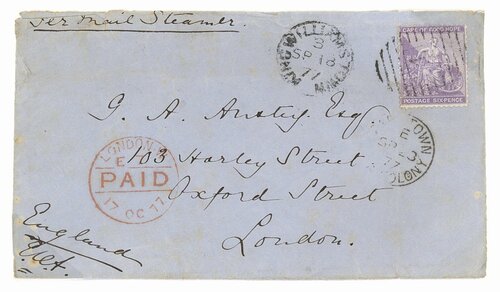 Per Mail Steamer.
KING WILLIAMS TOWN
B
SP 18
77
CAPE OF GOOD HOPE
POSTAGE SIXPENCE
TOWN
COLONY
G. A. Anstey Esq.
LONDON
E
PAID
17 OC 77
103 Harley Street
Oxford Street
London.
England